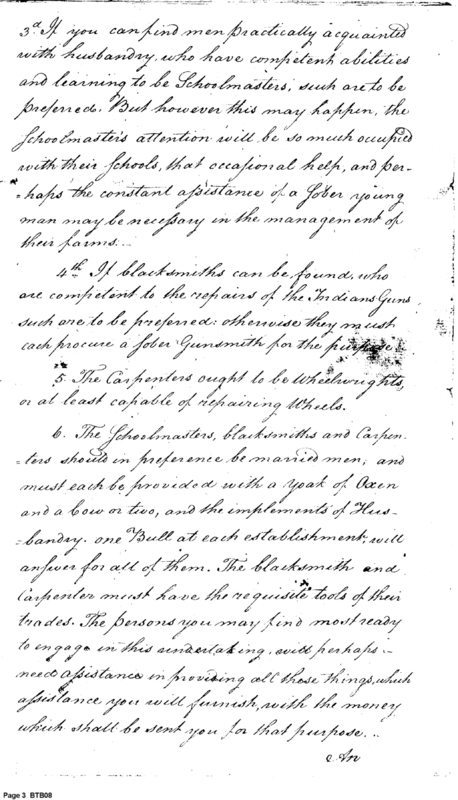 3.d If you can find men practically acquainted
with husbandry, who have competent abilities
and learning to be Schoolmasters, such are to be
preferred. But however this may happen, the
Schoolmaster's attention will be so much occupied
with their Schools, that occasional help, and per-
=haps the constant assistance of a sober young
man may be necessary in the management of
their farms...
4th If blacksmiths can be found, who
are competent to the repairs of the Indians Guns
such are to be preferred: otherwise they must
each procure a sober Gunsmith for the purpose.
5. The Carpenters ought to be Wheelwrights,
or at least capable of repairing Wheels.
6. The Schoolmasters, blacksmiths and Carpen-
=ters should in preference be married men; and
must each be provided with a yoak of Oxen
and a Cow or two, and the implements of Hus-
=bandry. one Bull at each establishment, will
answer for all of them. The blacksmith and
Carpenter must have the requisite tools of their
trades. The persons you may find most ready
to engage in this undertaking, will perhaps
need assistance in providing all these things, which
assistance you will furnish, with the money
which shall be sent you for that purpose...
An
Page 3 BTB08